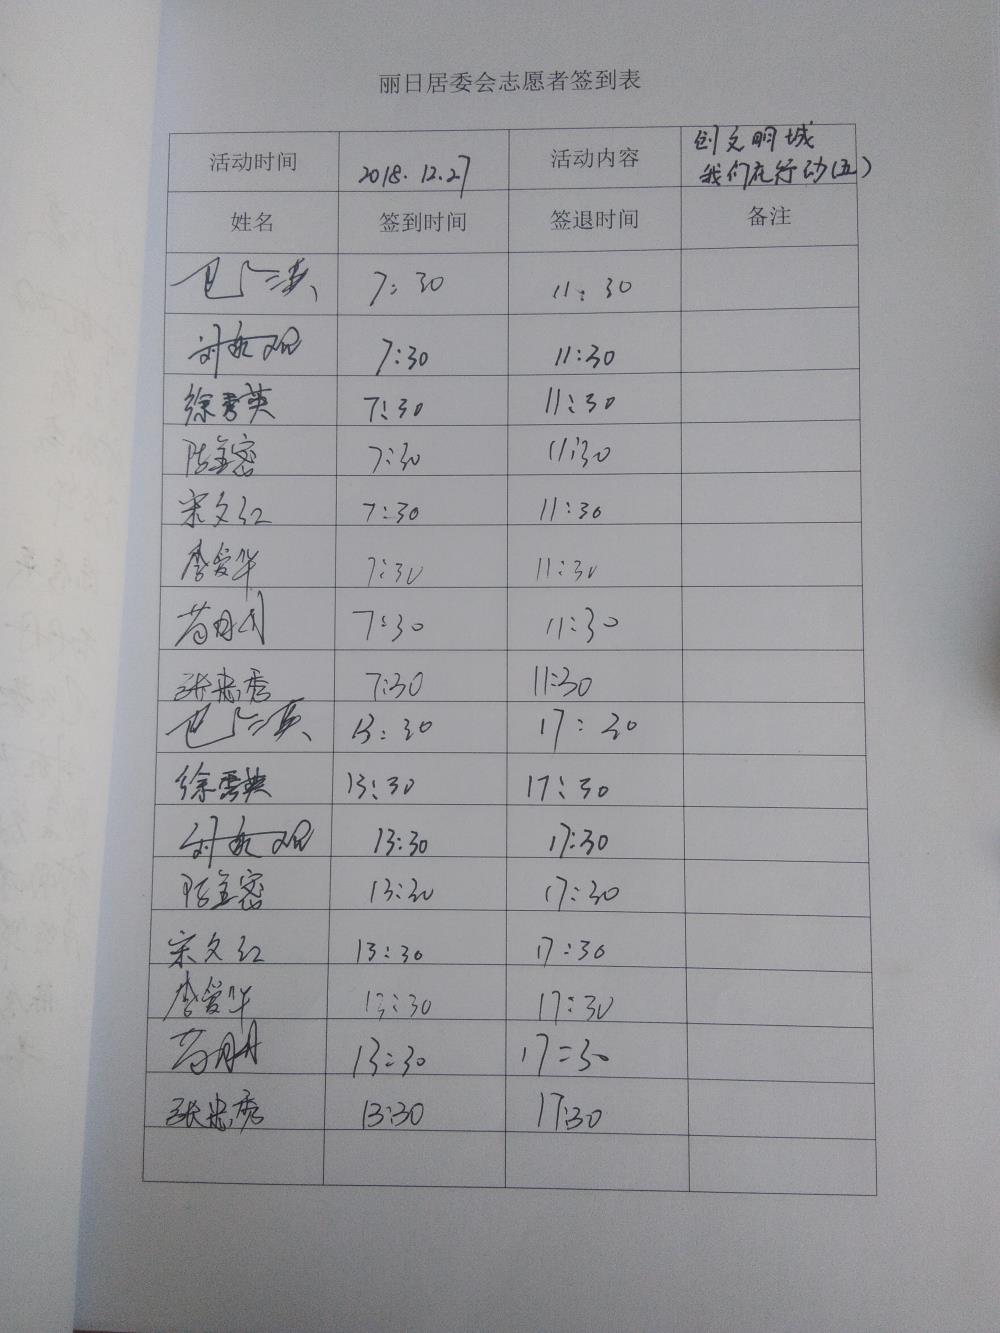 丽日居委会志愿者签到表
活动时间 2018.12.27 活动内容 创文明城
我们在行动(五)
姓名 签到时间 签退时间 备注
7:30 11:30
7:30 11:30
徐秀英 7:30 11:30
陈金密 7:30 11:30
宋文红 7:30 11:30
李爱华 7:30 11:30
7:30 11:30
张忠秀 7:30 11:30
13:30 17:30
徐秀英 13:30 17:30
13:30 17:30
陈金密 13:30 17:30
宋文红 13:30 17:30
李爱华 13:30 17:30
13:30 17:30
张忠秀 13:30 17:30